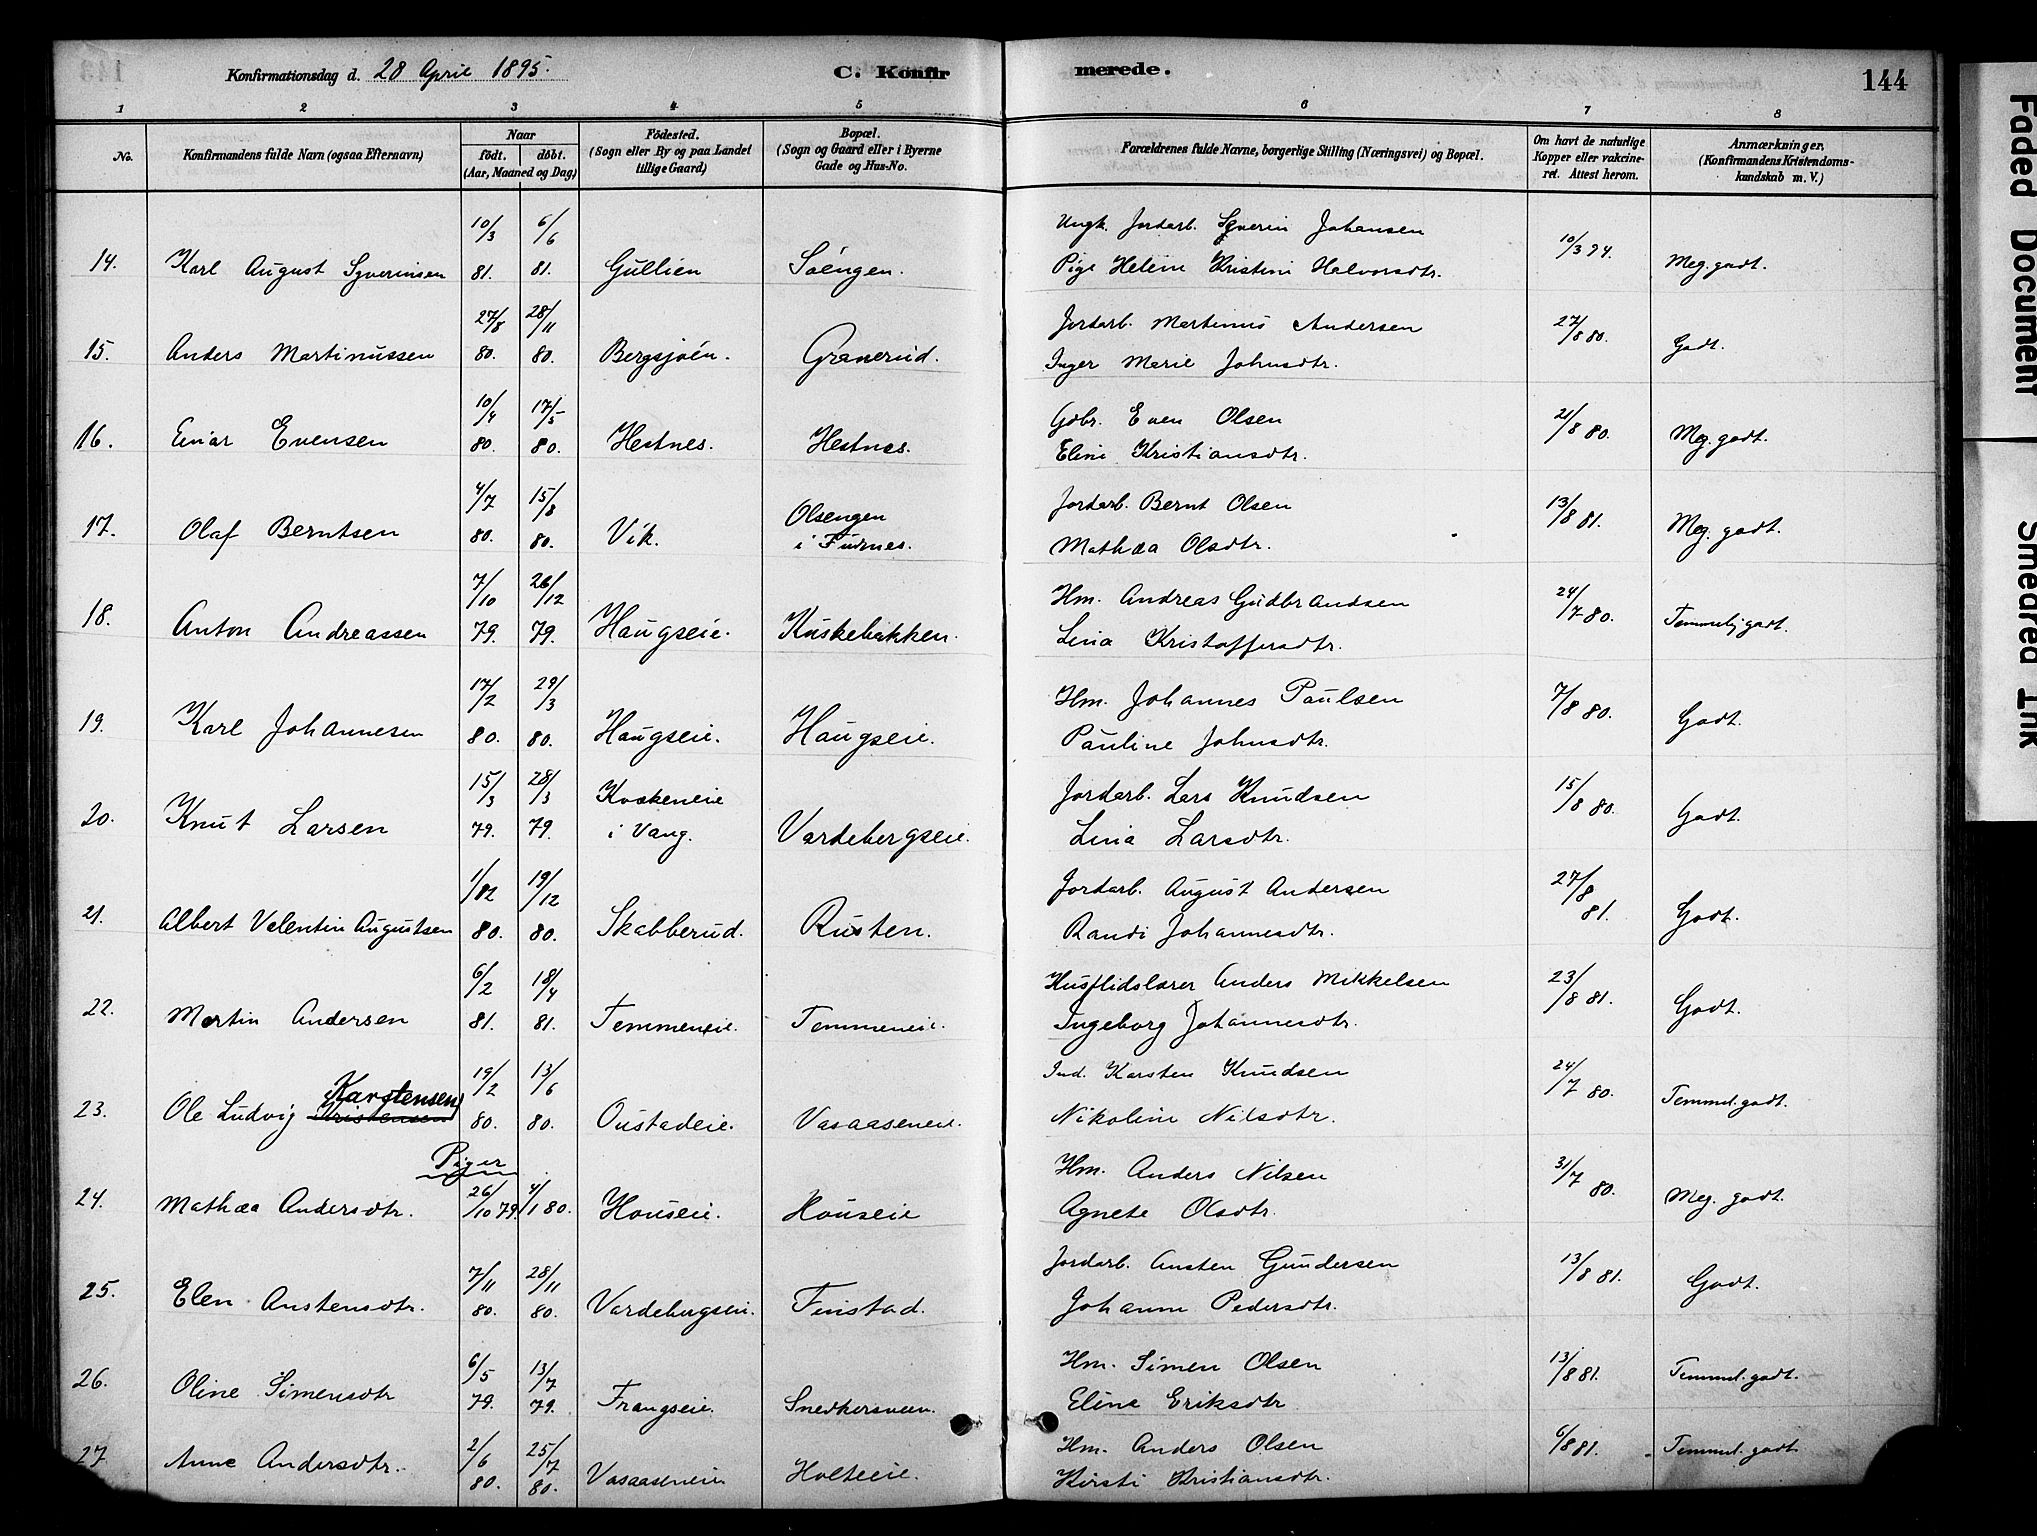 Konfirmationsdag d. 28 April 1895. C. Konfirmerede. 144
1 2 3 4 5 6 7 8
No. Konfirmandens fulde Navn (ogsaa Efternavn) Naar født. døbt. (Aar, Maaned og Dag) Fødested. (Sogn eller By og paa Landet tillige Gaard) Bopæl. (Sogn og Gaard eller i Byerne Gade og Hus-No. Forældrenes fulde Navne, borgerlige Stilling (Næringsvei) og Bopæl. Om havt de naturlige Kopper eller vakcineret. Attest herom. Anmærkninger, (Konfirmandens Kristendomskundskab m. V.)
10/3 6/6 Ungk. Jordarb. Syverin Johansen
14. Karl August Syverinsen 81. 81. Gullien Soéngen. Pige Heline Kristine Halvorsdtr. 10/3 94. Meg. godt.
27/8 28/11 Jordarb. Martinus Andersen
15. Anders Martinussen 80. 80. Bergsjoén. Granerud. Inger Marie Johnsdtr. 27/8 80. Godt.
10/4 17/5 Gdbr. Even Olsen
16. Einar Evensen 80. 80. Hestnes. Hestnes. Eline Kristiansdtr. 21/8 80. Meg. godt.
4/7 15/8 Olsengen Jordarb. Bernt Olsen
17. Olaf Berntsen 80. 80. Vik. i Furnes. Mathea Olsdtr. 13/8 81. Meg. godt.
7/10 26/12 Hm. Andreas Gudbrandsen
18. Anton Andreassen 79. 79. Haugseie. Kuskebakken. Lina Kristoffersdtr. 24/7 80. Temmelig godt.
17/2 29/3 Hm. Johannes Paulsen
19. Karl Johannesen 80. 80. Haugseie. Haugseie. Pauline Johnsdtr. 7/8 80. Godt.
15/3 28/3 Kvækeneie Jordarb. Lars Knudsen
20. Knut Larsen 79. 79. i Vang. Vardebergseie. Lina Larsdtr. 15/8 80. Godt.
1/12 19/12 Jordarb. August Andersen
21. Albert Valentin Augustsen 80. 80. Skabberud. Rusten. Randi Johannesdtr. 27/8 81. Godt.
6/2 18/4 Husflidslærer Anders Mikkelsen
22. Martin Andersen 81. 81. Temmeneie. Temmeneie. Ingeborg Johannesdtr. 23/8 81. Godt.
Karstensen 19/2 13/6 Ind. Karsten Knudsen
23. Ole Ludvig Kristensen 80. 80. Oustadeie. Vasaaseneie. Nikoline Nilsdtr. 24/7 80. Temmel. godt.
Piger Hm. Anders Nilsen
24. Mathea Andersdtr. 26/10 79. 4/1 80. Houseie. Houseie Agnete Olsdtr. 31/7 80. Meg. godt.
7/11 28/11 Jordarb. Ansten Gundersen
25. Elen Anstensdtr. 80. 80. Vardebergseie. Finstad. Johanne Pedersdtr. 13/8 81. Godt.
6/5 13/7 Hm. Simen Olsen
26. Oline Simensdtr 79. 79. Frangseie. Snedkersveen. Eline Eriksdtr. 13/8 81. Temmel. godt.
2/6 25/7 Hm. Anders Olsen
27 Anne Andersdtr. 80. 80. Vasaaseneie Holteeie. Kirsti Kristiansdtr. 6/8 81. Temmel. godt
Faded Document
Smeared Ink